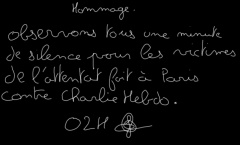 Hommage.
Observons tous une minute
de silence pour les victimes
de l'attentat fait à Paris
contre Charlie Hebdo.
O2H